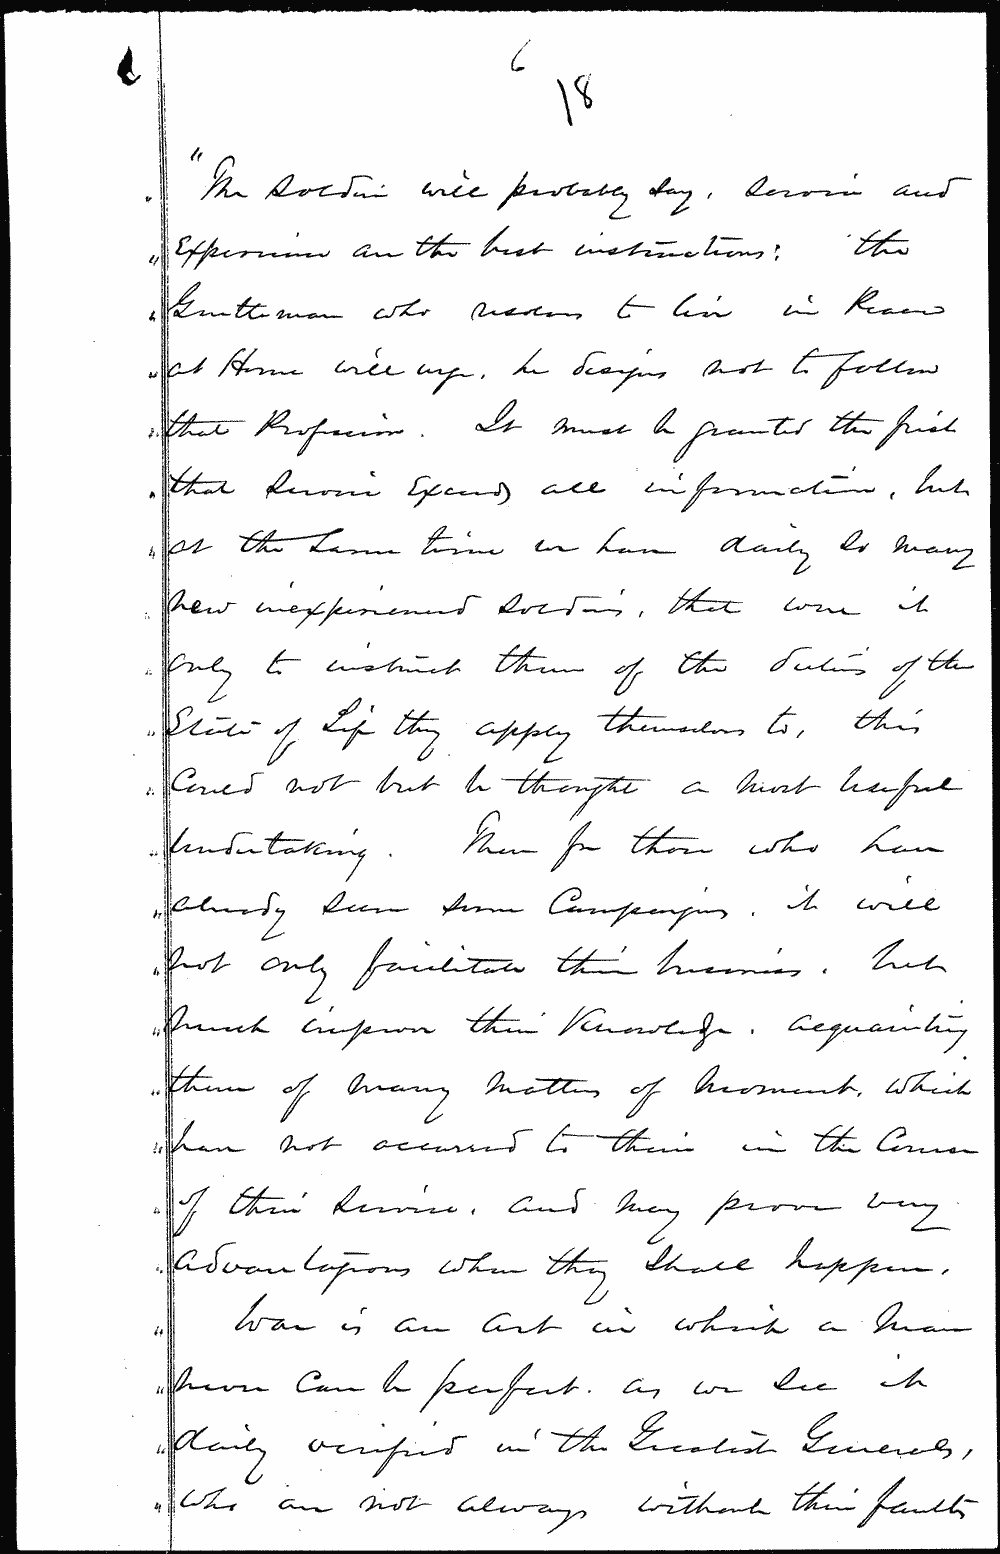 6
18
"The Soldier will probably say, Service and
" Experience are the best instructions; the
" Gentleman who resolves to live in Peace
" at Home will urge, he designs not to follow
" that Profession. It must be granted the first
" that Service Exceeds all information, but
" at the same time we have daily so many
" new inexperienced Soldiers, that were it
" only to instruct them of the duties of the
" State of Life they apply themselves to, this
" Could not but be thought a most useful
" Undertaking. Then for those who have
" already seen some Campaigns, it will
" not only facilitate their business, but
" much improve their Knowledge, acquainting
" them of many Matters of Moment, which
" have not occurred to them in the Course
" of their Service, and may prove very
" advantageous when they shall happen.
" War is an Art in which a Man
" never Can be perfect, as we see it
" daily verified in the Greatest Generals,
" who are not always without their faults